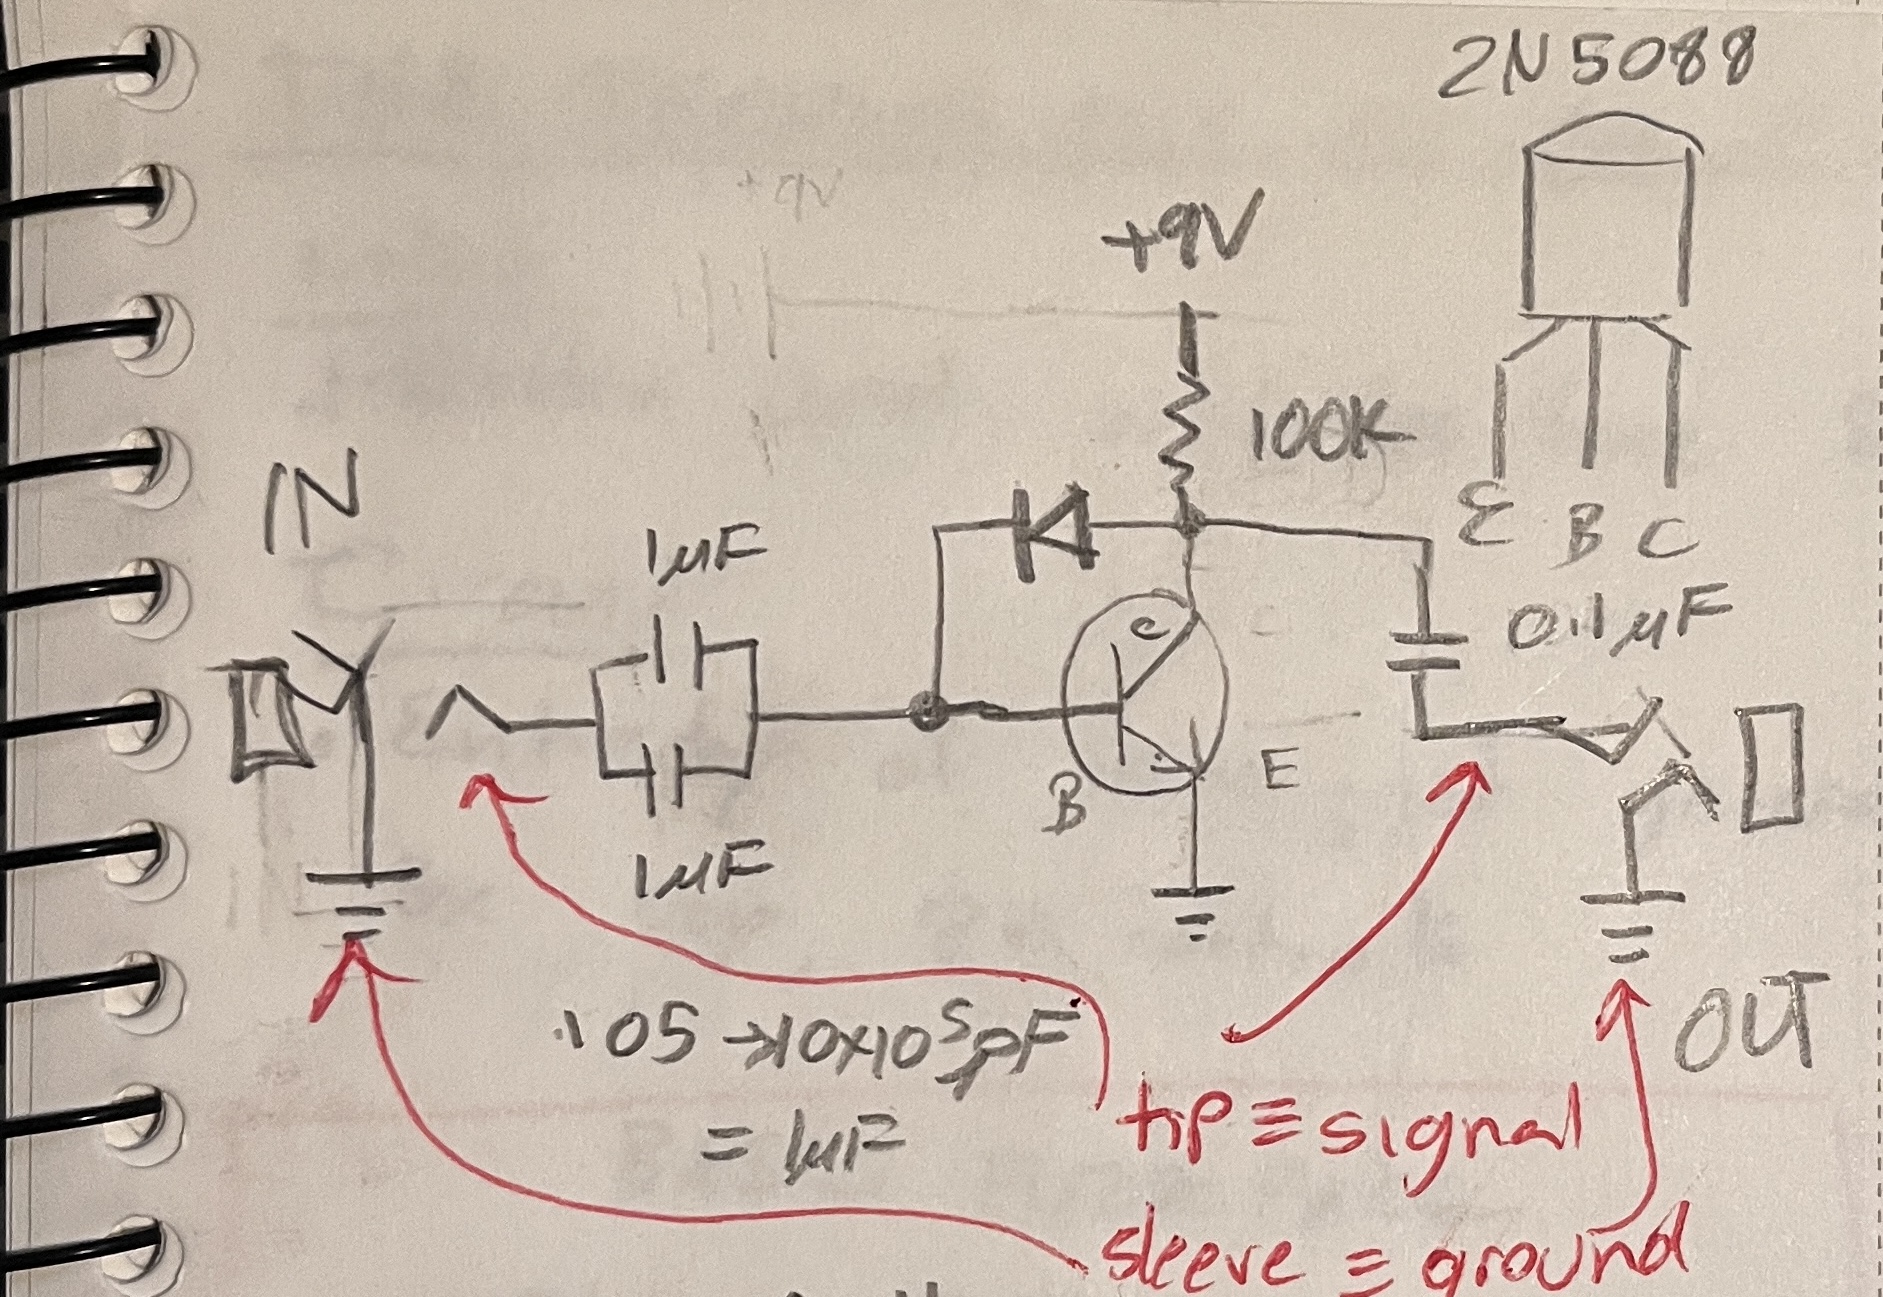 2N5088
+9V
+9V
100K
IN
E B C
1μF
0.1μF
C
E
B
1μF
OUT
105 → 10x10⁵pF
= 1μF
tip ≡ signal
sleeve = ground